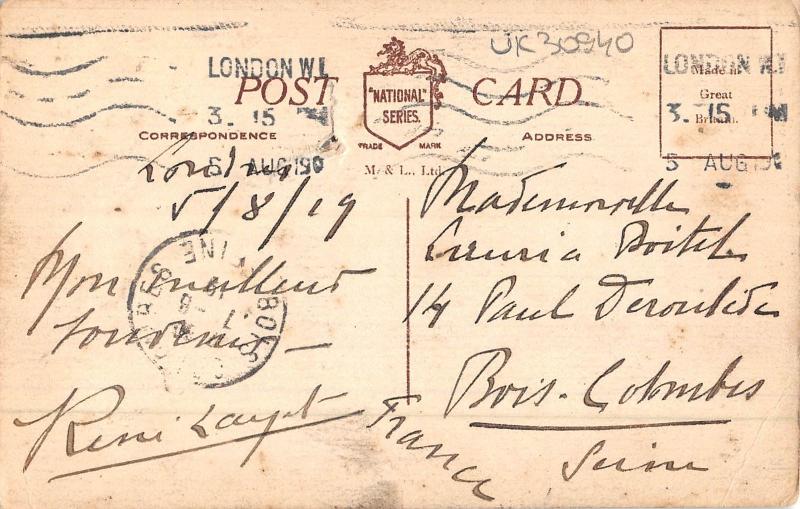 UK30940
LONDON W.1
3. 15 PM
5 AUG 19
LONDON W.1
3. 15 PM
5 AUG 19
POST CARD
"NATIONAL"
SERIES.
TRADE MARK
M. & L., Ltd.
CORRESPONDENCE
ADDRESS
Made in
Great
Britain.
Londres
5/8/19
Mon meilleur
souvenir
René
Mademoiselle
Boitel
14 Paul Deroulède
Bois-Colombes
Seine
France
BOIS COLOMBES
SEINE